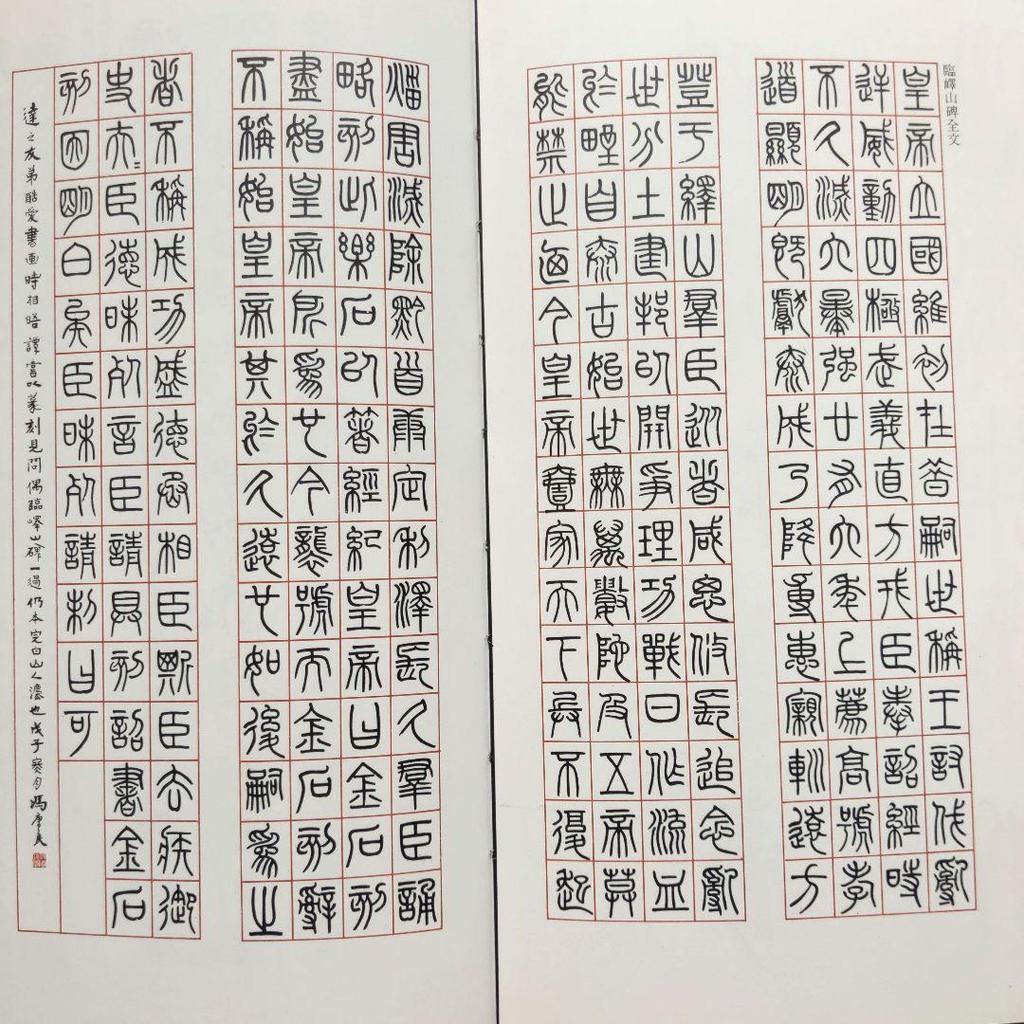 臨嶧山碑全文
皇帝立國維初在昔嗣世稱王討伐亂
逆威動四極武義直方戎臣奉詔經時
不久滅六暴强廿有六年上薦高號孝
道顯明既獻泰成乃降專惠親巡遠方
登于繹山羣臣從者咸思攸長追念亂
世分土建邦以開爭理功戰日作流血
於野自泰古始世無萬數陀及五帝莫
能禁止迺今皇帝壹家天下兵不復起
災害滅除黔首康定利澤長久羣臣誦
略刻此樂石以著經紀皇帝曰金石刻
盡始皇帝所爲也今襲號而金石刻辭
不稱始皇帝其於久遠也如後嗣爲之
者不稱成功盛德丞相臣斯臣去疾御
史夫=臣德昧死言臣請具刻詔書金石
刻因明白矣臣昧死請制曰可
達之友弟酷愛書画時相晤譚嘗以篆刻見問偶臨嶧山碑一過仍本完白山人灋也戊子 馮康矦